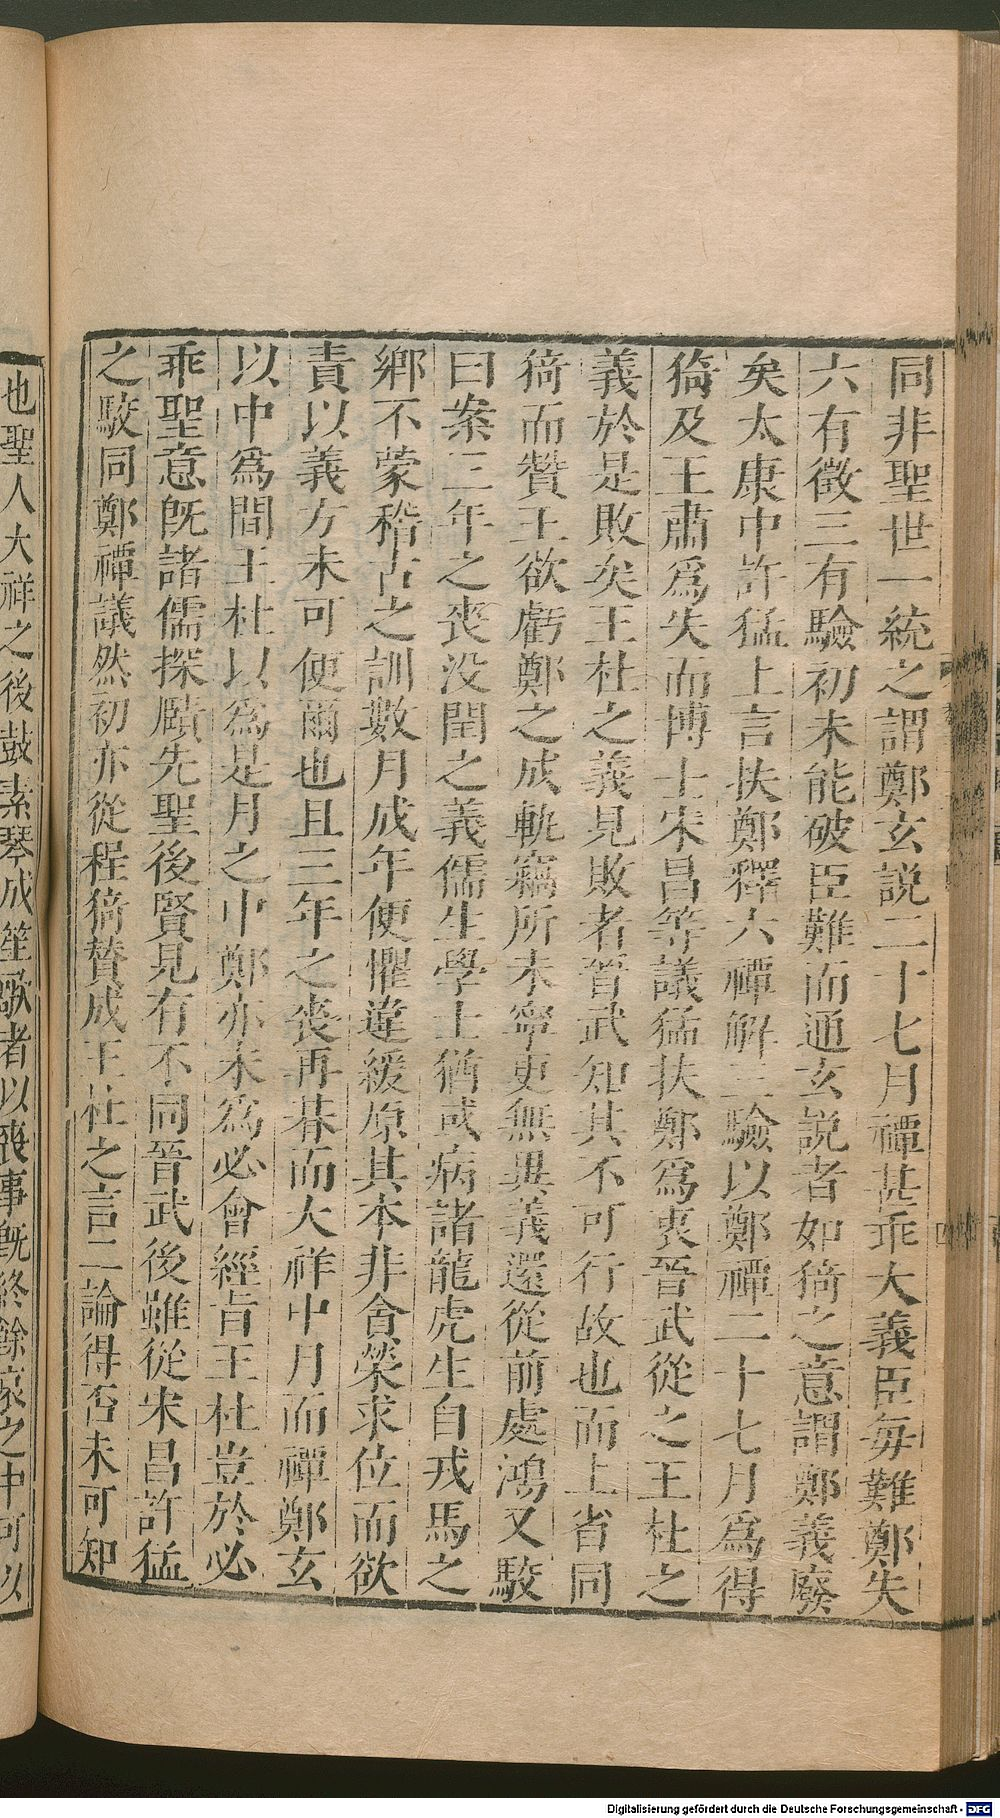 同非聖世一統之謂鄭玄説二十七月禫甚乖大義臣每難鄭失
六有徵三有驗初未能破臣難而通玄説者如猗之意謂鄭義廢
矣太康中許猛上言扶鄭釋六禫解三驗以鄭禫二十七月爲得
猗及王肅爲失而博士宋昌等議猛扶鄭爲衷晉武從之王杜之
義於是敗矣王杜之義見敗者晉武知其不可行故也而上省同
猗而贊王欲虧鄭之成軌竊所未寧更無異義還從前處鴻又駮
曰案三年之喪没閏之義儒生學士猶或病諸龍虎生自戎馬之
鄉不蒙稽古之訓數月成年便懼違緩原其本非貪榮求位而欲
責以義方未可便爾也且三年之喪再朞而大祥中月而禫鄭玄
以中爲間王杜以爲是月之中鄭亦未爲必會經旨王杜豈於必
乖聖意旣諸儒探賾先聖後賢見有不同晉武後雖從宋昌許猛
之駮同鄭禫議然初亦從程猗贊成王杜之言二論得否未可知
也聖人大祥之後鼓素琴成笙歌者以喪事旣終餘哀之中可以